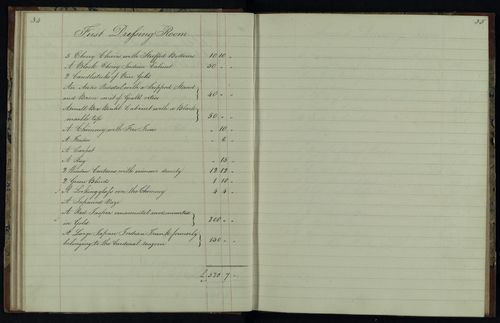 34
35
First Dressing Room
5 Ebony Chairs with Stuffed Bottoms 10 10 -
A Black Ebony Indian Cabinet 50 - -
2 Candlesticks of Gold
An Stand
and 40 - -
A small Cabinet with a Black
marble top 50 - -
A Chimney with Fire Irons - 10 -
A Fender - 6 -
A Carpet
A Rug - 15 -
2 Window Curtains with 12 12 -
2 Green Blinds 1 10 -
A Looking glass over the Chimney 4 4 -
A Japanned
A Red Jasper and mounted
in Gold 200 - -
A Large Japan Indian Trunk formerly
belonging to the Cardinal 150 - -
£ 7 -